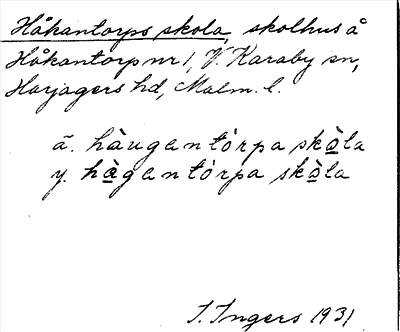 Håkantorps skola, skolhus å
Håkantorp nr 1, V. Karaby sn,
Harjagers hd, Malm. l.
ä. hàugantórpa skò̲la
y. hà̲gantórpa skò̲la
I. Ingers 1931